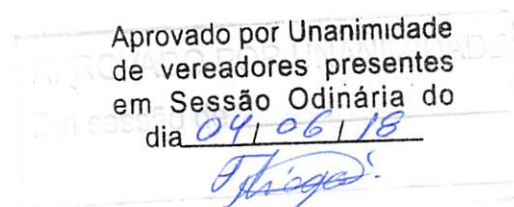 Aprovado por Unanimidade
de vereadores presentes
em Sessão Odinária do
dia 04/06/18